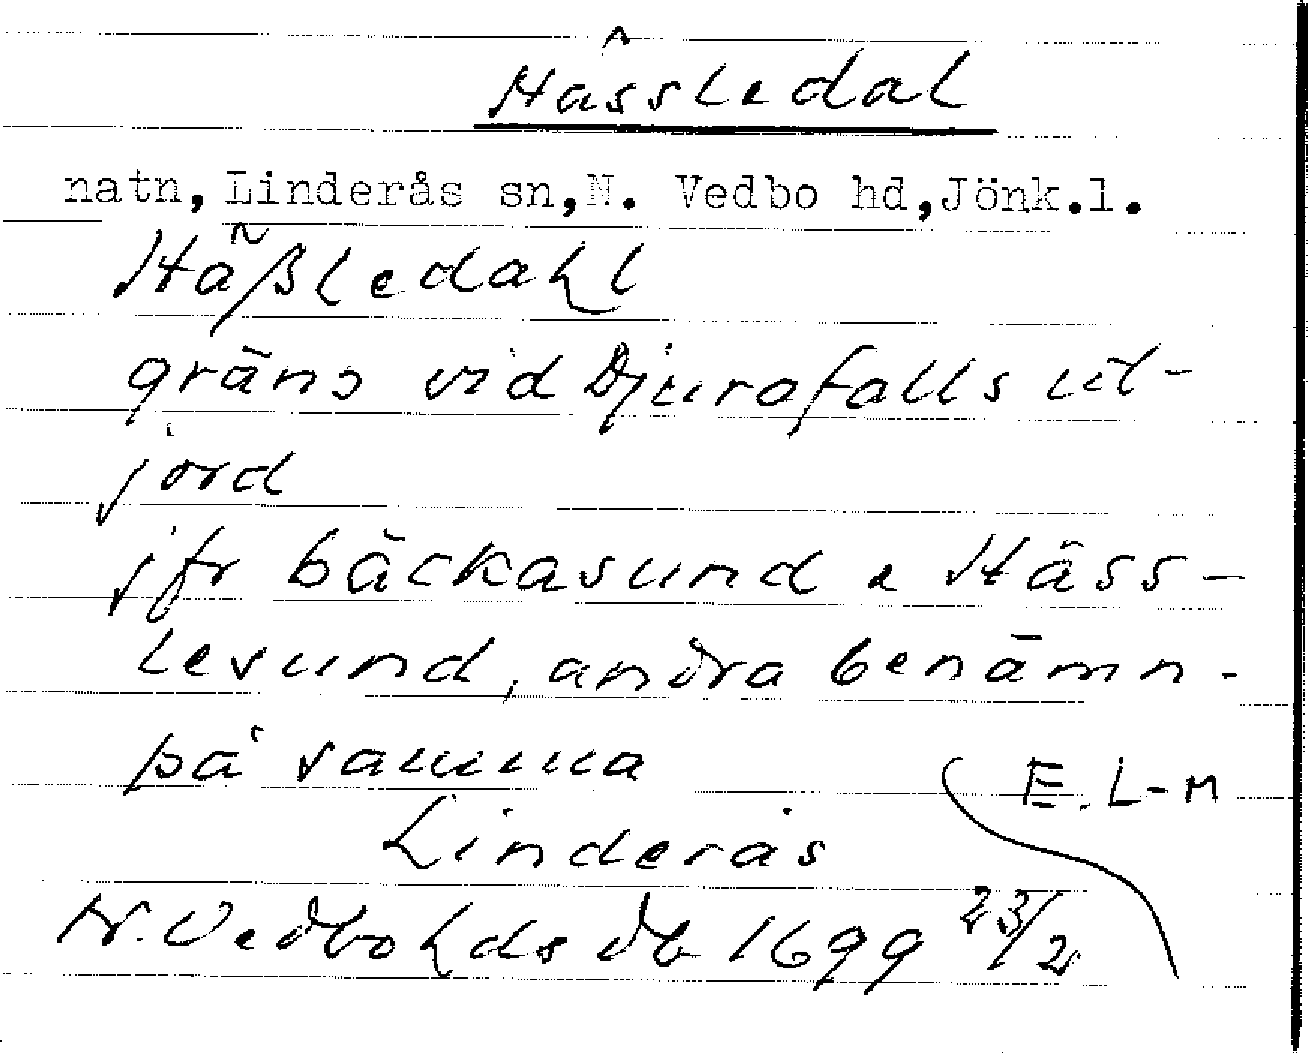 Hässledal
natn, Linderås sn,N. Vedbo hd,Jönk.l.
Häßledahl
gräns vid Djurafalls ut-
jord
jfr bäckasund e Häss-
lesund, andra benämn.
på samma
E. L-M
Linderås
N. Vedbo hds db 1699 23/2